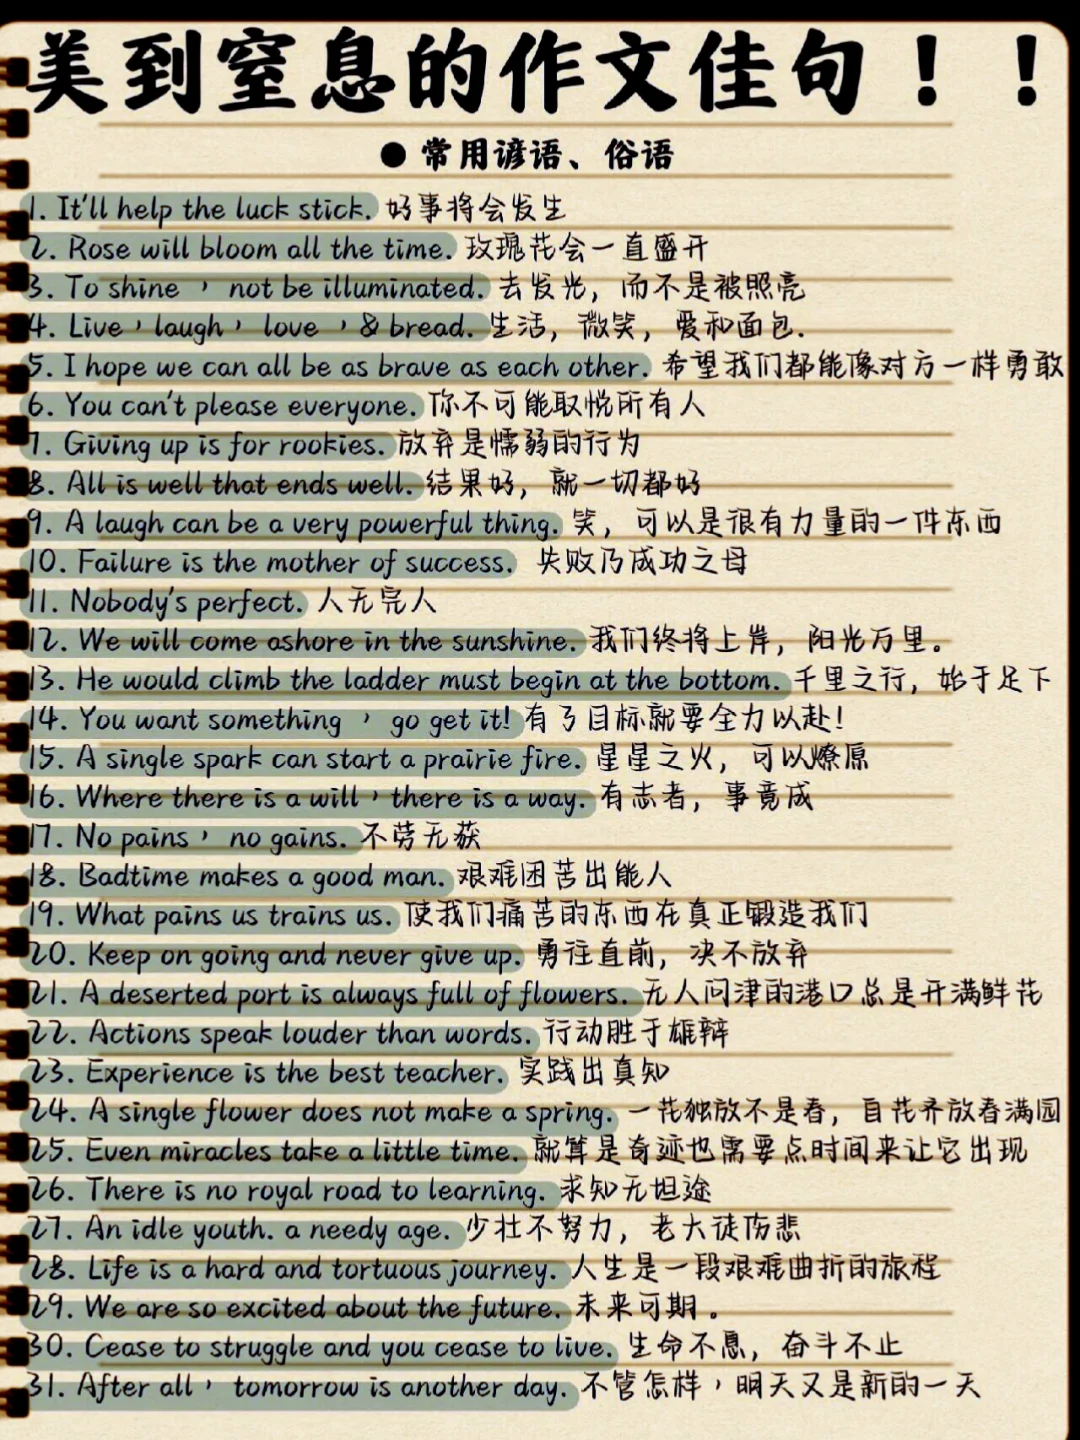 美到窒息的作文佳句！！
● 常用谚语、俗语
1. It'll help the luck stick. 好事将会发生
2. Rose will bloom all the time. 玫瑰花会一直盛开
3. To shine ， not be illuminated. 去发光，而不是被照亮
4. Live，laugh， love ，& bread. 生活，微笑，爱和面包.
5. I hope we can all be as brave as each other. 希望我们都能像对方一样勇敢
6. You can't please everyone. 你不可能取悦所有人
7. Giving up is for rookies. 放弃是懦弱的行为
8. All is well that ends well. 结果好，就一切都好
9. A laugh can be a very powerful thing. 笑，可以是很有力量的一件东西
10. Failure is the mother of success. 失败乃成功之母
11. Nobody's perfect. 人无完人
12. We will come ashore in the sunshine. 我们终将上岸，阳光万里。
13. He would climb the ladder must begin at the bottom. 千里之行，始于足下
14. You want something ， go get it! 有了目标就要全力以赴！
15. A single spark can start a prairie fire. 星星之火，可以燎原
16. Where there is a will，there is a way. 有志者，事竟成
17. No pains， no gains. 不劳无获
18. Badtime makes a good man. 艰难困苦出能人
19. What pains us trains us. 使我们痛苦的东西在真正锻造我们
20. Keep on going and never give up. 勇往直前，决不放弃
21. A deserted port is always full of flowers. 无人问津的港口总是开满鲜花
22. Actions speak louder than words. 行动胜于雄辩
23. Experience is the best teacher. 实践出真知
24. A single flower does not make a spring. 一花独放不是春，百花齐放春满园
25. Even miracles take a little time. 就算是奇迹也需要点时间来让它出现
26. There is no royal road to learning. 求知无坦途
27. An idle youth. a needy age. 少壮不努力，老大徒伤悲
28. Life is a hard and tortuous journey. 人生是一段艰难曲折的旅程
29. We are so excited about the future. 未来可期。
30. Cease to struggle and you cease to live. 生命不息，奋斗不止
31. After all， tomorrow is another day. 不管怎样，明天又是新的一天